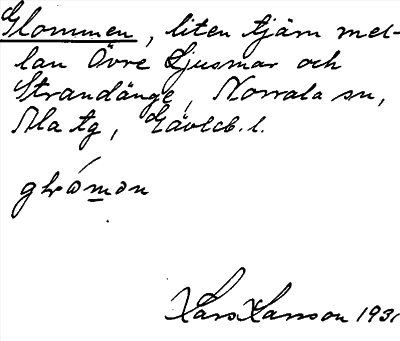 Glommen, liten tjärn mel-
lan Övre Ljusmar och
Strandänge, Norrala sn,
Ala tg, Gävleb. l.
Lars Larsson 1931